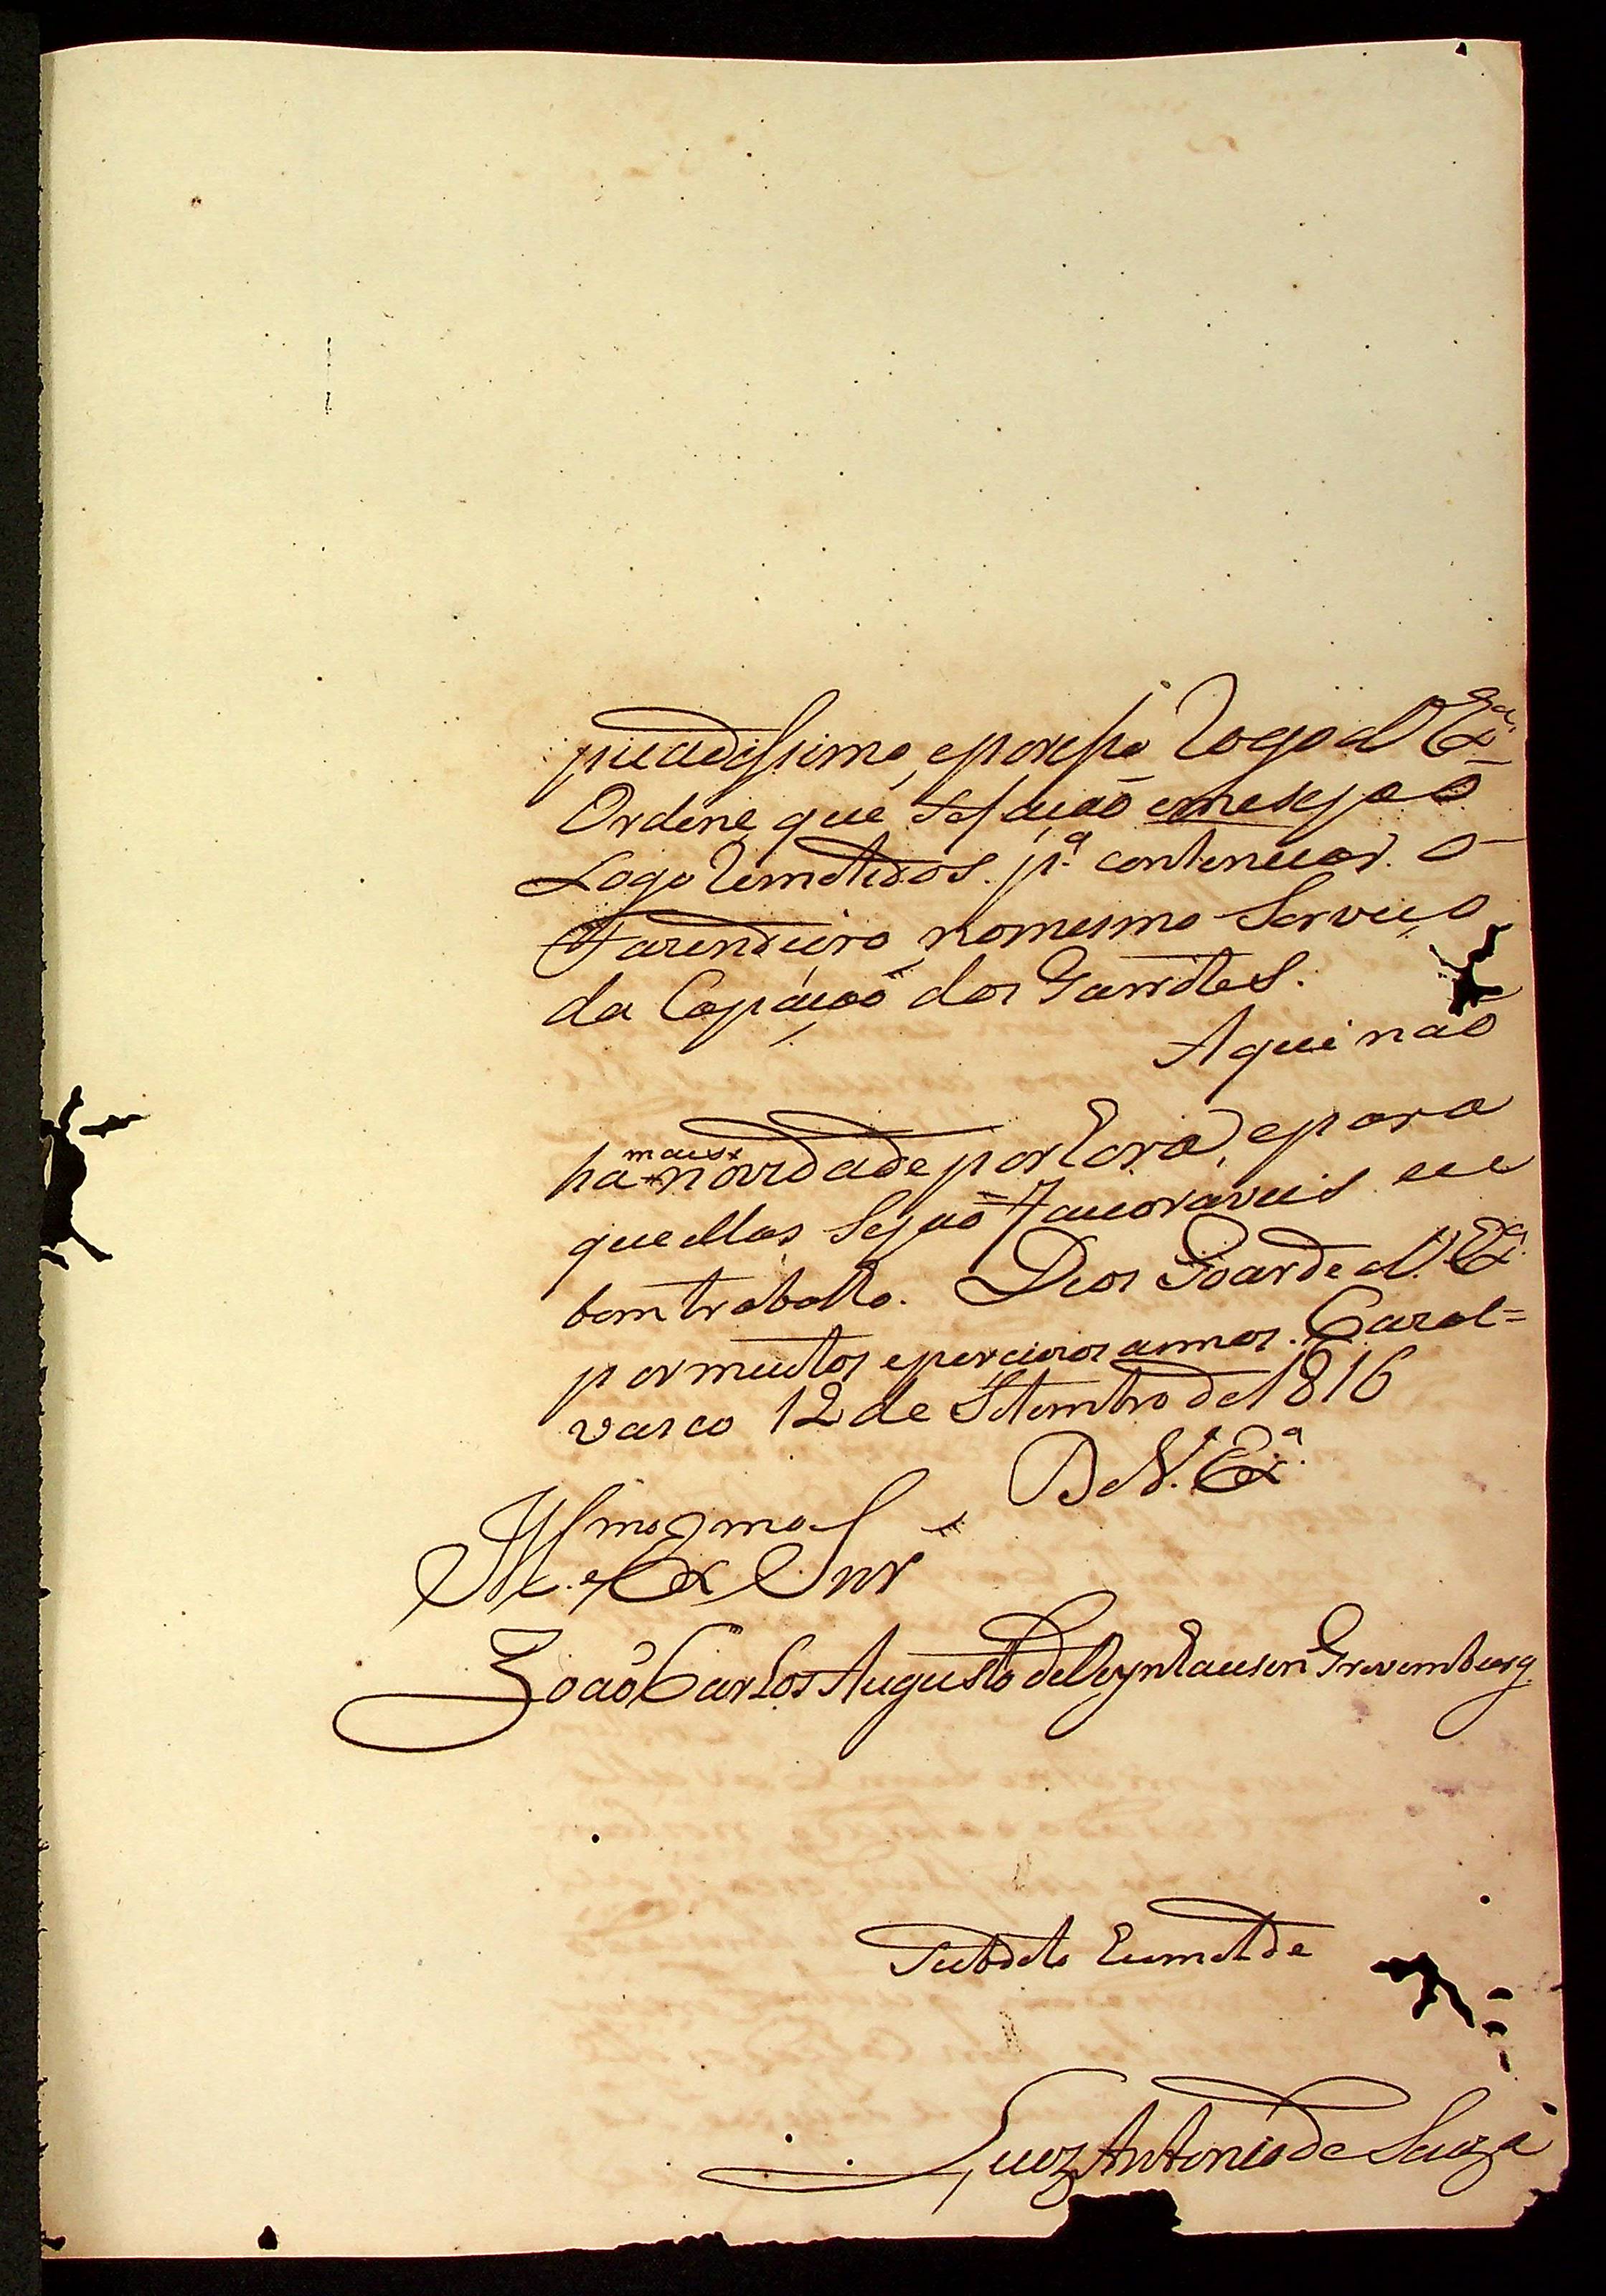 picadissimo, eporisso Rogo a V Ex.ª
Ordene que sefação emesejão
Logo Remetidos. p.ª continuar. o
Farendeiro, nomesmo Serviço
da Capação dos Garrótes.
Aqui não
mais
há novidade porhora, epara
que ellas Sejão Favoraveis eu
bem trabalho. Deos Goarde a V. Exª.
pormuitos eperciosos annos. Casal=
vasco 12 de Setembro de 1816
De V. Ex.ª
Illmo e Exmo Snr
João Carlos Augusto de Oeynhausen Grevemburg
Subdito Eumilde
Luiz Antonio de Souza